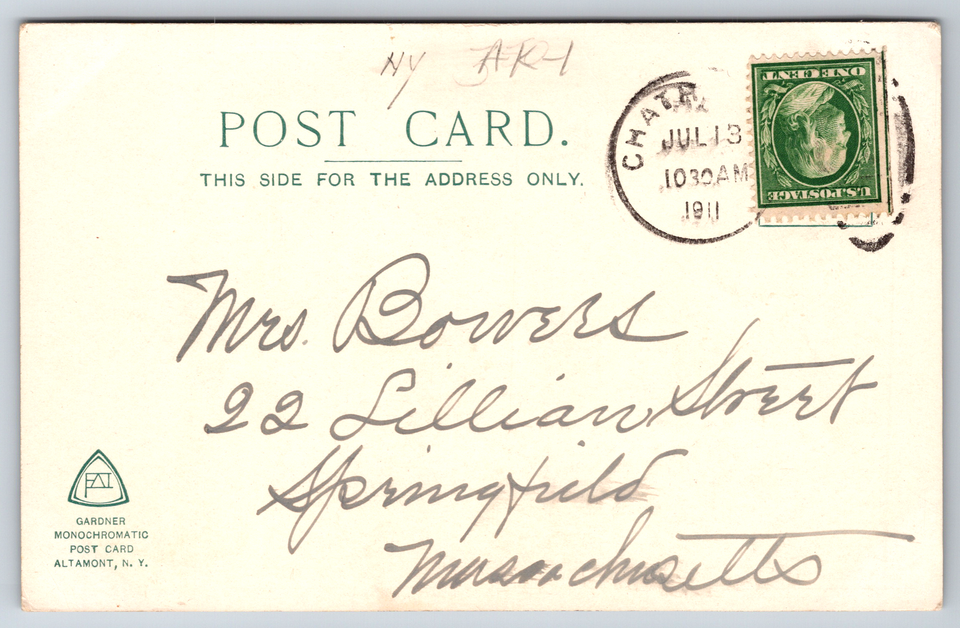 NY AR-1
POST CARD.
THIS SIDE FOR THE ADDRESS ONLY.
CHATH
JUL 13
1030 AM
1911
ONE CENT
U.S. POSTAGE
Mrs. Bowers
22 Lillian Street
Springfield
Massachusetts
GARDNER
MONOCHROMATIC
POST CARD
ALTAMONT, N. Y.